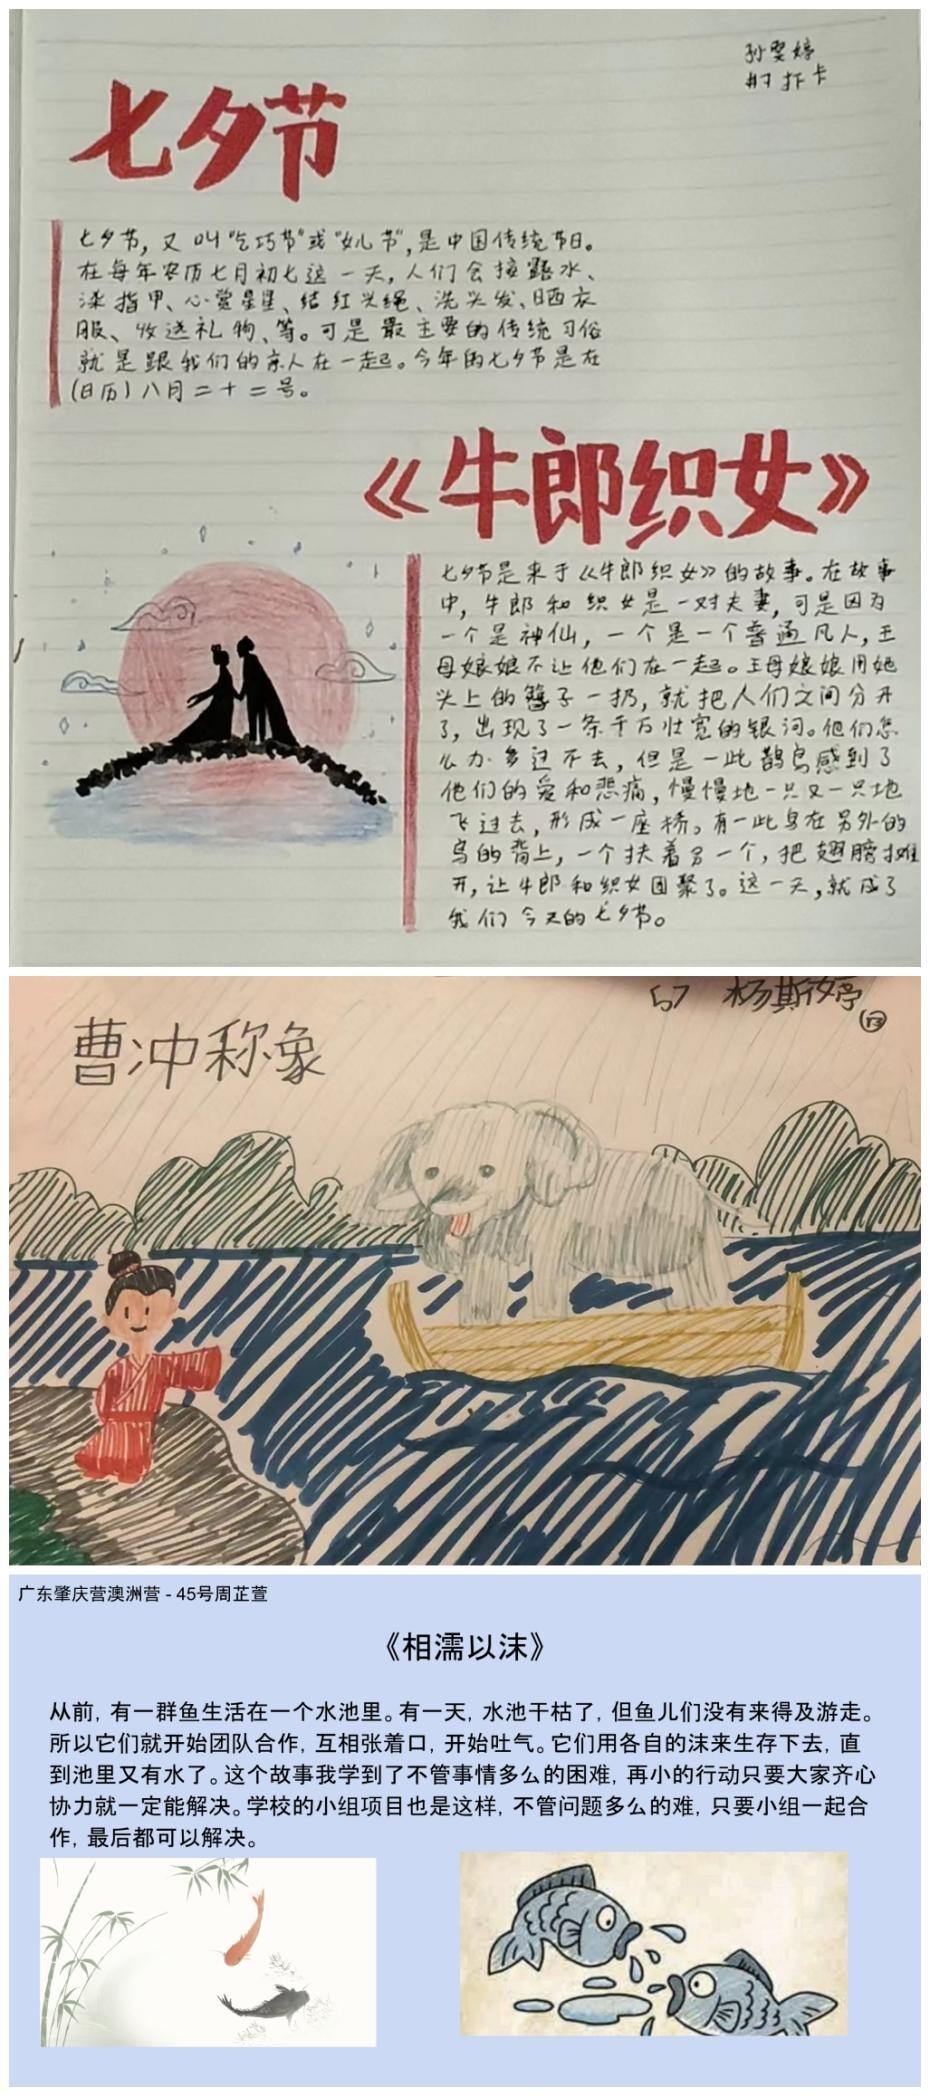 孙
打卡
七夕节
七夕节，又叫“乞巧节”或“女儿节”，是中国传统节日。
在每年农历七月初七这一天，人们会接露水、
染指甲、心赏星星、结红头绳、洗头发、晒衣
服、收送礼物、等。可是最主要的传统习俗
就是跟我们的亲人在一起。今年的七夕节是在
(日历)八月二十二号。
《牛郎织女》
七夕节是来于《牛郎织女》的故事。在故事
中，牛郎和织女是一对夫妻，可是因为
一个是神仙，一个是一个普通凡人，王
母娘娘不让他们在一起。王母娘娘用她
头上的簪子一扔，就把人们之间分开
了，出现了一条千万壮宽的银河。他们怎
么办多过不去，但是一此鹊鸟感到了
他们的爱和悲痛，慢慢地一只又一只地
飞过去，形成一座桥。有一此鸟在另外的
鸟的背上，一个扶着另一个，把翅膀摊
开，让牛郎和织女团聚了。这一天，就成了
我们今天的七夕节。
57 杨斯
曹冲称象
广东肇庆营澳洲营 - 45号周芷萱
《相濡以沫》
从前，有一群鱼生活在一个水池里。有一天，水池干枯了，但鱼儿们没有来得及游走。
所以它们就开始团队合作，互相张着口，开始吐气。它们用各自的沫来生存下去，直
到池里又有水了。这个故事我学到了不管事情多么的困难，再小的行动只要大家齐心
协力就一定能解决。学校的小组项目也是这样，不管问题多么的难，只要小组一起合
作，最后都可以解决。